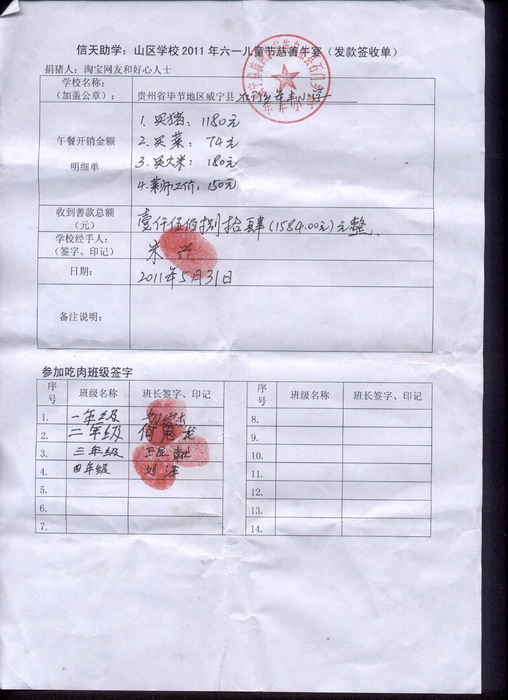 信天助学：山区学校 2011 年六一儿童节慈善午宴（发款签收单）
捐猪人：淘宝网友和好心人士
学校名称：
（加盖公章）：
贵州省毕节地区威宁县
午餐开销金额
明细单
1. 买猪：1180元
2. 买菜：74元
3. 买大米：180元
4. 菜师工价：150元
收到善款总额
（元）
壹仟伍佰捌拾肆(1584.00元)元整
学校经手人：
（签字、印记）
朱
日期：
2011年5月31日
备注说明：
参加吃肉班级签字
序号 班级名称 班长签字、印记 序号 班级名称 班长签字、印记
1. 一年级 8.
2. 二年级 9.
3. 三年级 10.
4. 四年级 11.
5. 12.
6. 13.
7. 14.